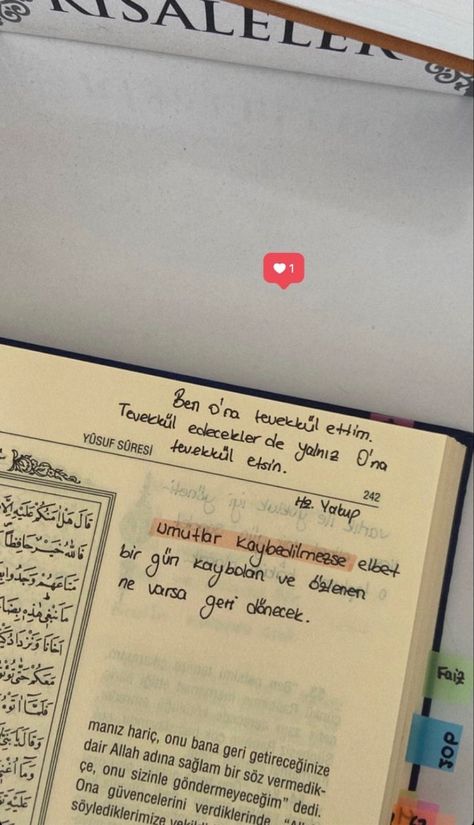 RİSALELER
1
Ben O'na tevekkül ettim.
Tevekkül edecekler de yalnız O'na
tevekkül etsin.
YÛSUF SÛRESİ
242
Hz. Yakup
umutlar kaybedilmezse elbet
bir gün kaybolan ve özlenen
ne varsa geri dönecek.
قَالَ هَلْ اٰمَنُكُمْ عَلَيْهِ اِلَّا
فَاللّٰهُ خَيْرٌ حَافِظًا
مَتَاعَهُمْ وَجَدُوا
مَا نَبْغٖي هٰذِهٖ
اَخَانَا وَنَزْدَادُ
مَعَكُمْ حَتّٰى
فَلَمَّٓا اٰتَوْهُ
وَقَالَ يَا
وَمَٓا اُغْنٖي
عَلَيْهِ
manız hariç, onu bana geri getireceğinize
dair Allah adına sağlam bir söz vermedik-
çe, onu sizinle göndermeyeceğim” dedi.
Ona güvencelerini verdiklerinde,
söylediklerimize
Faiz